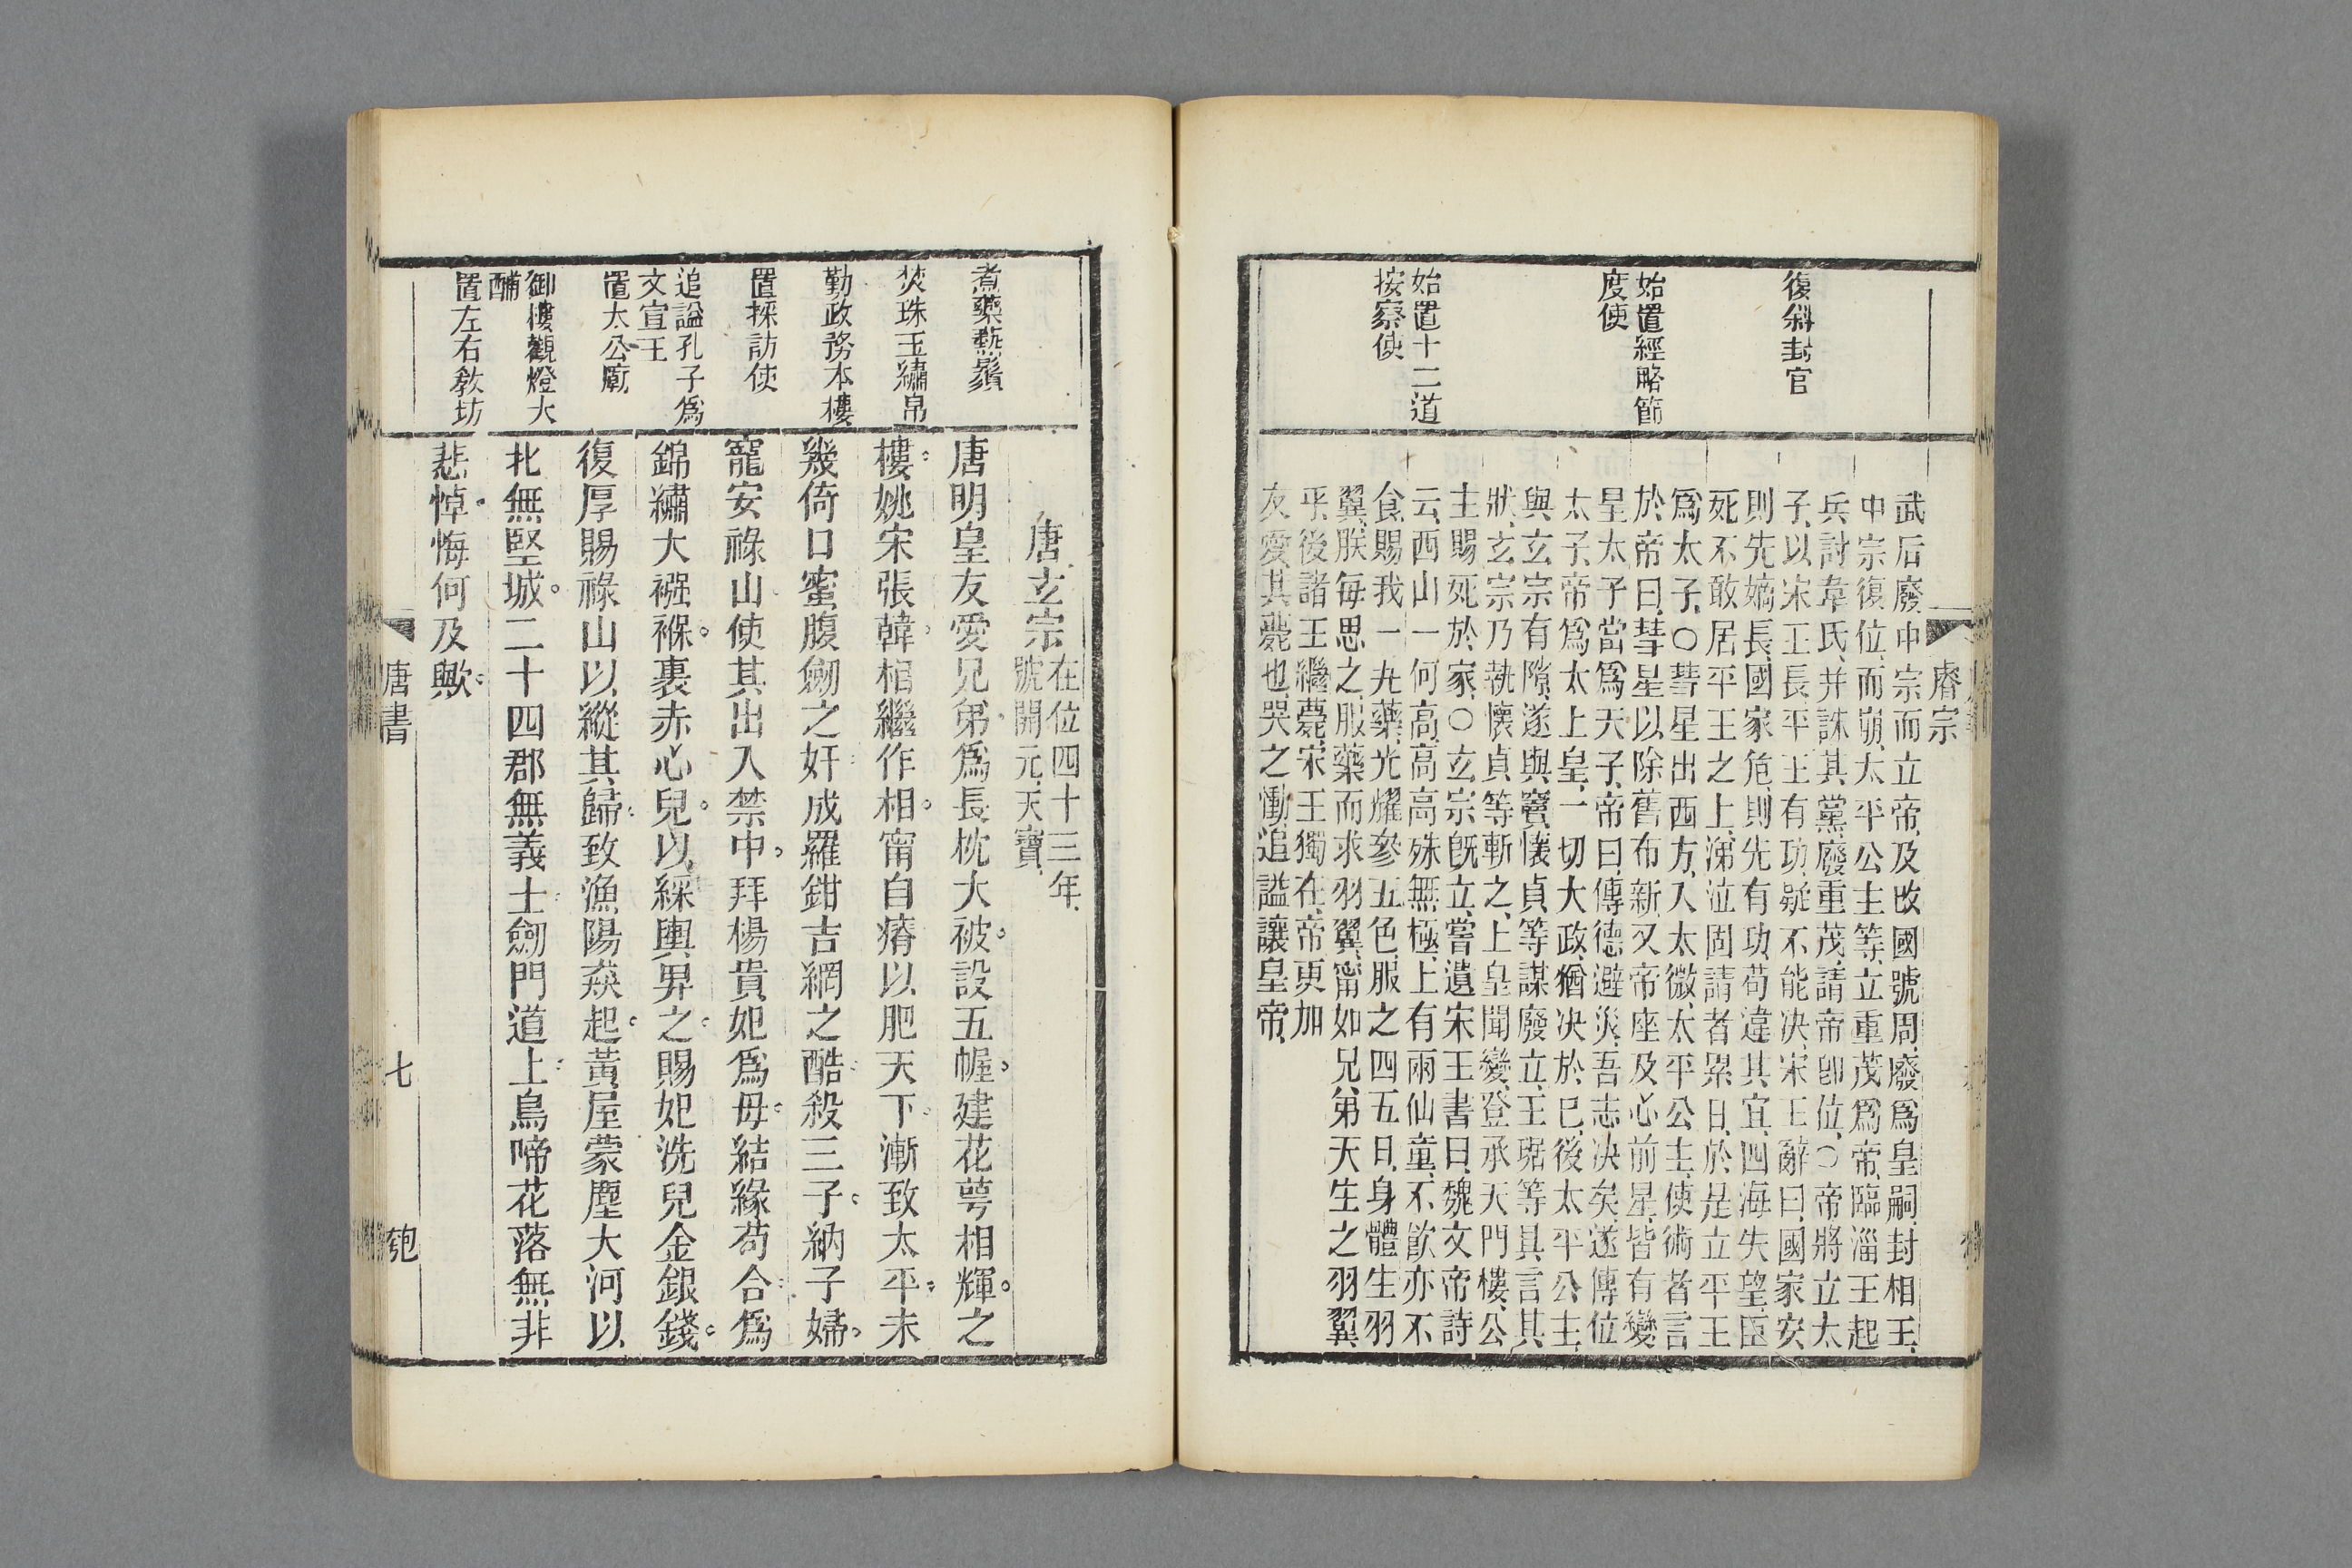 復斜封官
始置經略節
度使
始置十二道
按察使
睿宗
武后廢中宗而立帝、及改國號周、廢爲皇嗣、封相王、
中宗復位、而崩、太平公主等、立重茂爲帝、臨淄王起
兵討韋氏、并誅其黨、廢重茂、請帝卽位、○帝將立太
子、以宋王長、平王有功、疑不能决、宋王辭曰、國家安
則先嫡長、國家危、則先有功、苟違其宜、四海失望、臣
死不敢居平王之上、涕泣固請者累日、於是立平王
爲太子、○彗星出西方、入太微、太平公主、使術者言
於帝曰、彗星以除舊布新、又帝座及心前星、皆有變
皇太子當爲天子、帝曰、傳德避災、吾志决矣、遂傳位
太子、帝爲太上皇、一切大政、猶决於已、後太平公主、
與玄宗有隙、遂與竇懷貞等謀廢立、王琚等具言其
狀、玄宗乃執懷貞等斬之、上皇聞變、登承天門樓、公
主賜死於家、○玄宗旣立、嘗遺宋王書曰、魏文帝詩
云、西山一何高、高高殊無極、上有兩仙童、不飮亦不
食、賜我一丸藥、光耀參五色、服之四五日、身體生羽
翼、朕每思之、服藥而求羽翼、甯如兄弟天生之羽翼
乎、後諸王繼薨、宋王獨在、帝更加
友愛其薨也、哭之慟、追謚讓皇帝、
煮藥爇鬚
焚珠玉繡帛
勤政務本樓
置採訪使
追謚孔子爲
文宣王
置太公廟
御樓觀燈大
酺
置左右敎坊
唐玄宗在位四十三年、
號開元、天寶、
唐明皇友愛兄弟爲長枕大被。設五幄。建花萼相輝。之
樓。姚宋張韓。相繼作相。甯自瘠以肥天下。漸致太平。未
幾倚口蜜腹劒之奸。成羅鉗吉網之酷。殺三子。納子婦。
寵安祿山。使其出入禁中。拜楊貴妃爲毋。結緣苟合。爲
錦繡大襁褓。裹赤心兒。以綵輿舁之。賜妃洗兒金銀錢。
復厚賜祿山以縱其歸。致漁陽猋起。黃屋蒙塵大河以
北無堅城。二十四郡無義士。劒門道上。鳥啼花落無非
悲悼。悔何及歟。
唐書
七